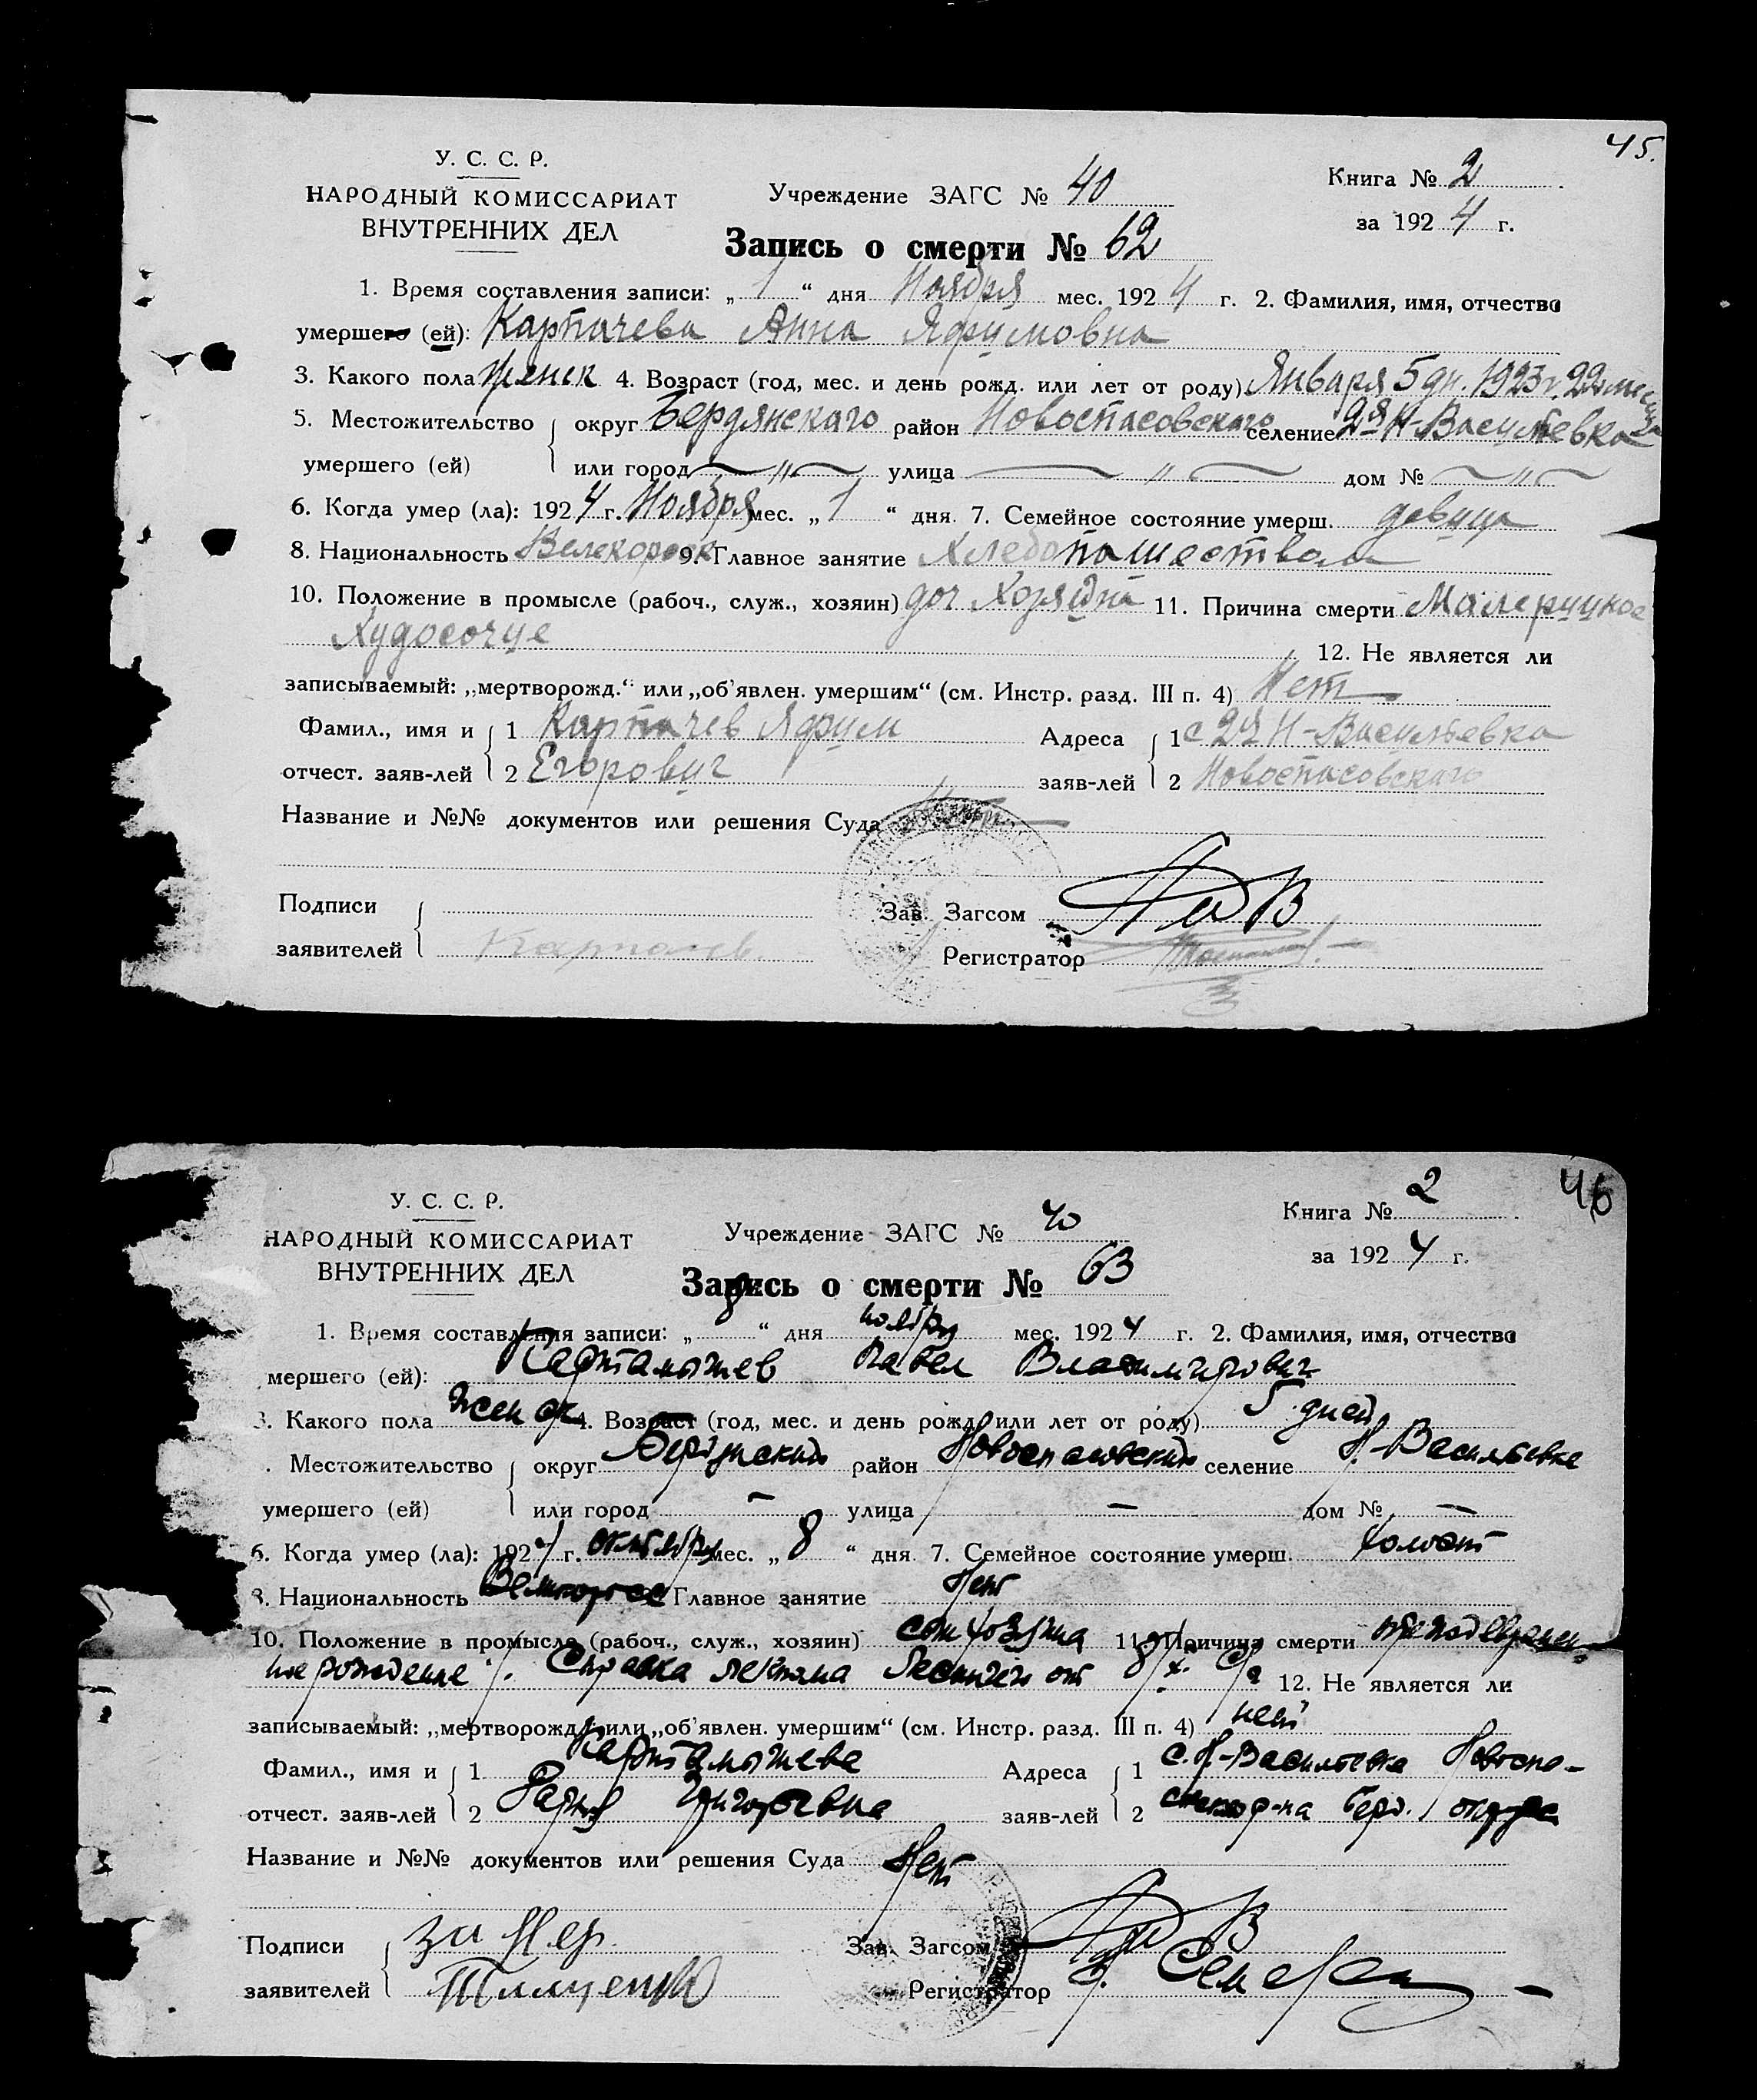 45.
У. С. С. Р.
НАРОДНЫЙ КОМИССАРИАТ
ВНУТРЕННИХ ДЕЛ
Учреждение ЗАГС № 40
Книга № 2
за 1924 г.
Запись о смерти № 62
1. Время составления записи: „1“ дня Ноября мес. 1924 г. 2. Фамилия, имя, отчество
умершего (ей): Карпачева Анна Яфимовна
3. Какого пола женск 4. Возраст (год, мес. и день рожд. или лет от роду) Января 5 дн. 1923 г. 22 месяца
5. Местожительство округ Бердянскаго район Новоспасовскаго селение 2я Н-Васильевка
умершего (ей) или город „ улица „ дом № „
6. Когда умер (ла): 1924 г. Ноября мес. „1“ дня. 7. Семейное состояние умерш. девица
8. Национальность Велекоросск 9. Главное занятие Хлебопашеством
10. Положение в промысле (рабоч., служ., хозяин) доч Хозяина 11. Причина смерти Малерицкое
Худосочие 12. Не является ли
записываемый: „мертворожд.“ или „об'явлен. умершим“ (см. Инстр. разд. III п. 4) Нет
Фамил., имя и 1 Карпачев Яфим Адреса 1 с 2я Н-Васильевка
отчест. заяв-лей 2 Егорович заяв-лей 2 Новоспасовскаго
Название и №№ документов или решения Суда Нет
Подписи Зав. Загсом
заявителей Карпачев Регистратор
46
У. С. С. Р.
НАРОДНЫЙ КОМИССАРИАТ
ВНУТРЕННИХ ДЕЛ
Учреждение ЗАГС № 40
Книга № 2
за 1924 г.
Запись о смерти № 63
1. Время составления записи: „8“ дня ноября мес. 1924 г. 2. Фамилия, имя, отчество
мершего (ей): Карташев Павел Владимирович
3. Какого пола женск 4. Возраст (год, мес. и день рожд. или лет от роду) 5 дней
. Местожительство округ Бердянский район Новоспасовский селение Н.-Васильевка
умершего (ей) или город — улица — дом № —
6. Когда умер (ла): 1924 г. октября мес. „8“ дня. 7. Семейное состояние умерш. холост
8. Национальность Великоросс Главное занятие Нет
10. Положение в промысле (рабоч., служ., хозяин) сын хозяина 11. Причина смерти преждевремен-
ное рождение. Справка лекпома от 8/X. 12. Не является ли
записываемый: „мертворожд.“ или „об'явлен. умершим“ (см. Инстр. разд. III п. 4) нет
Фамил., имя и 1 Адреса 1 с. Н.-Васильевка Новоспа-
отчест. заяв-лей 2 Григорьевна заяв-лей 2 р-на Берд. округа
Название и №№ документов или решения Суда Нет
Подписи за нер. Зав. Загсом
заявителей Регистратор